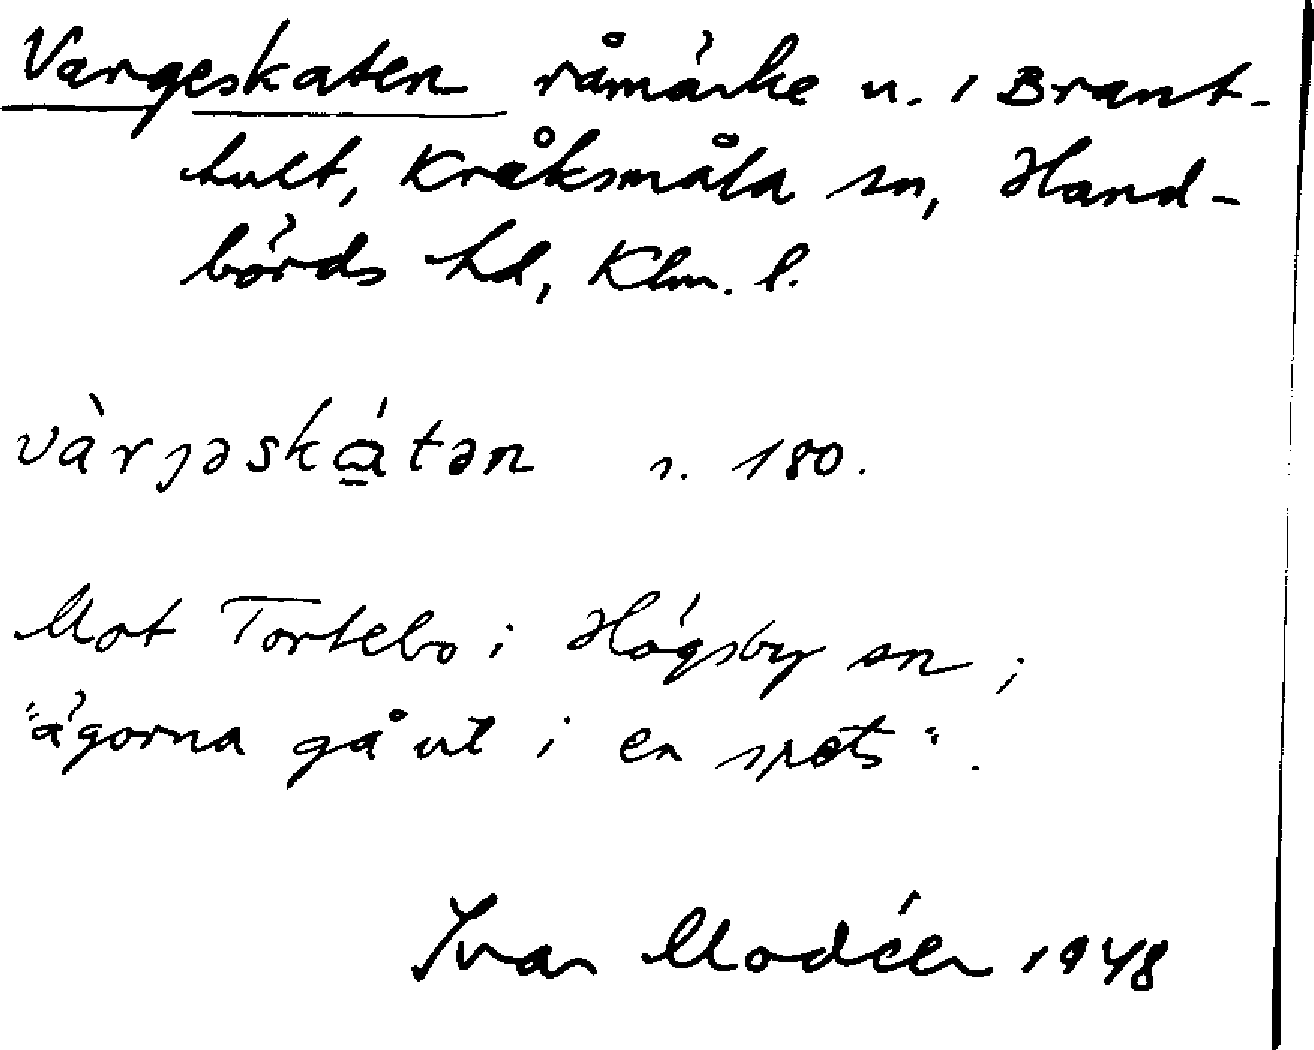 Vargeskaten råmärke n. i Brant-
hult, Kråksmåla sn, Hand-
börds hd, Klm. l.
vàrjəskátən s. 180.
Mot Tortebo i Högsby sn;
"ägorna gå ut i en spets".
Ivar Modéer 1948